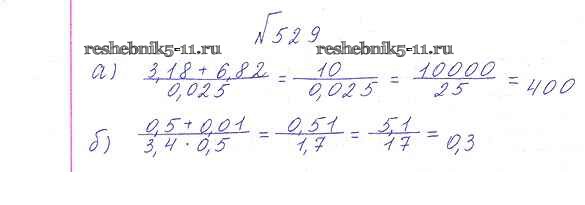 №529
reshebnik5-11.ru reshebnik5-11.ru
а) (3,18 + 6,82)/0,025 = 10/0,025 = 10000/25 = 400
б) (0,5 + 0,01)/(3,4 · 0,5) = 0,51/1,7 = 5,1/17 = 0,3